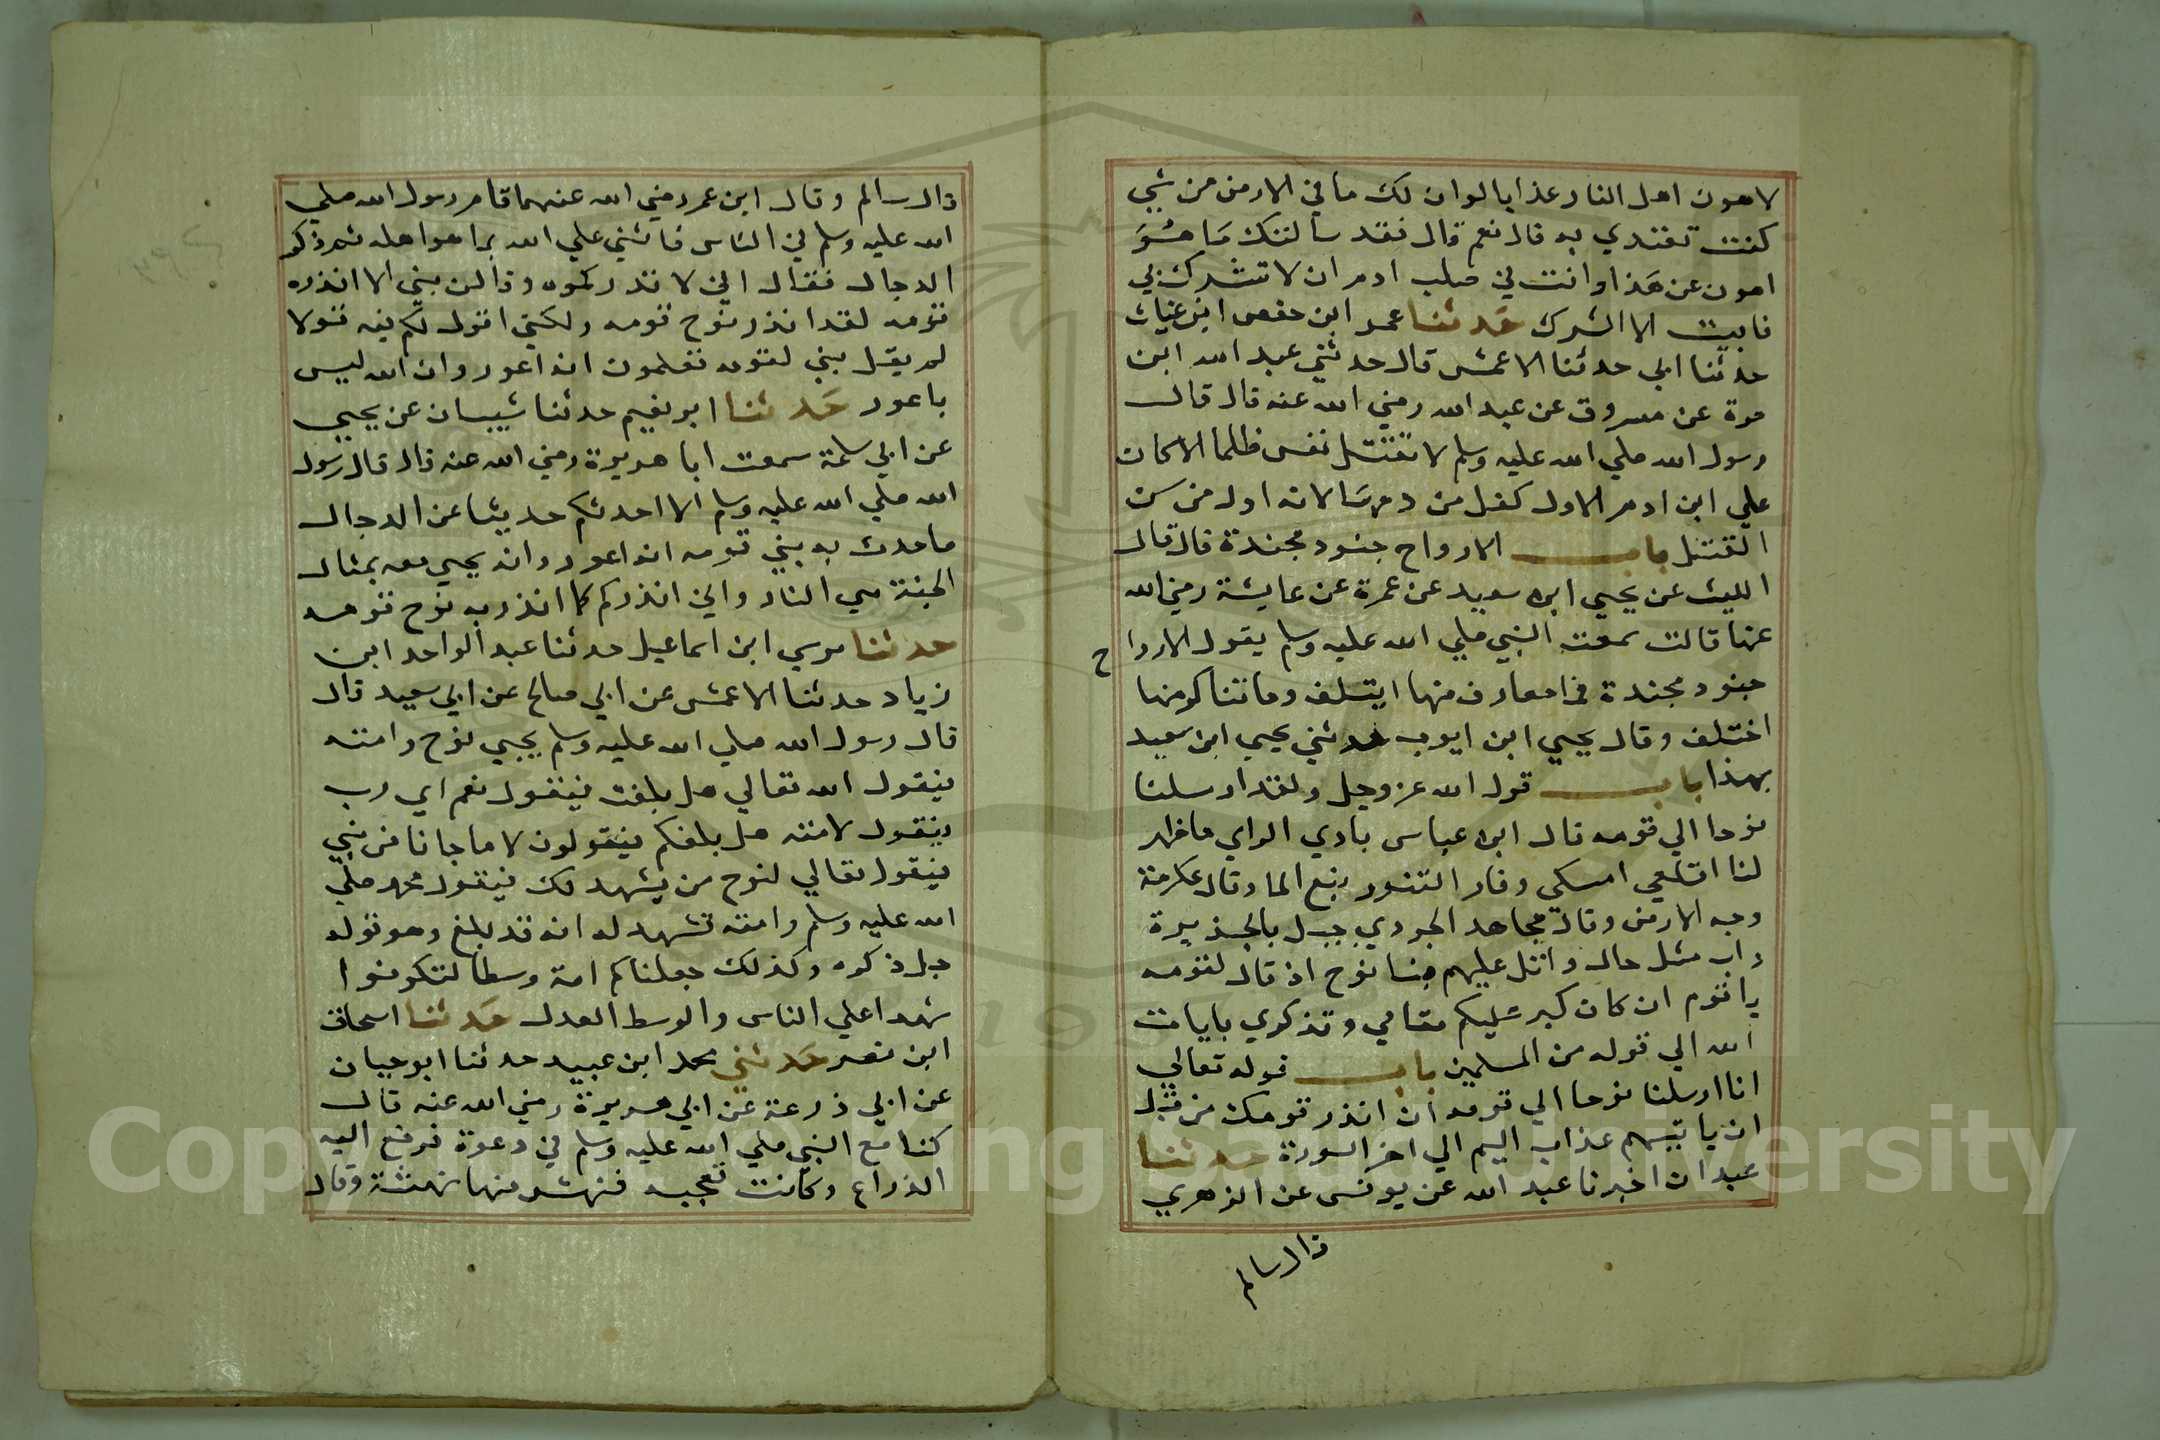 لاهون اهل النار عذابا لوان لك ما في الارض من شيي
كنت تفتدي به قال نعم قال فقد سالتك مَا هُوَ
اهون عن هَذا وانت في صلب ادم ان لا تشرك بي
فابيت الا الشرك حَدثنا عمر ابن حفص ابن غياث
حدثنا ابي حدثنا الاعمش قال حدثني عبد الله ابن
مرة عن مسروق عن عبد الله رضي الله عنه قال قال
رسول الله صلي الله عليه وسلم لا تقتل نفس ظلما الا كان
علي ابن ادم الاول كفل من دمهَا لانه اول من سن
القتل باب الارواح جنود مجندة قال قال
الليث عن يحيي ابن سعيد عن عمرة عن عايشة رضي الله
عنها قالت سمعت النبي صلي الله عليه وسلم يقول الارواح
جنود مجندة فما معارف منها ايتلف وما تناكر منها
اختلف وقال يحيي ابن ايوب حدثني يحيي ابن سعيد
بهذا باب قول الله عز وجل ولقد ارسلنا
نوحا الي قومه قال ابن عباس بادي الراي ما ظهر
لنا اقلعي امسكي وفار التنور نبع الما وقال عكرمة
وجه الارض وقال مجاهد الجودي جبل بالجذيرة
داب مثل حال واتل عليهم نبا نوح اذ قال لقومه
يا قوم ان كان كبر عليكم مقامي وتذكري بايات
الله الي قوله من المسلمين باب قوله تعالي
انا ارسلنا نوحا الي قومه ان انذر قومك من قبل
ان ياتيهم عذاب اليم الي اخر السورة حدثنا
عبدان اخبرنا عبد الله عن يونس عن الزهري
قال سالم
قال سالم وقال ابن عمر رضي الله عنهما قام رسول الله صلي
الله عليه وسلم في الناس فاثني علي الله بما هو اهله ثم ذكر
الدجال فقال اني لا نذركموه وما من نبي الا انذره
قومه لقد انذر نوح قومه ولكني اقول لكم فيه قولا
لم يقل نبي لقومه تعلمون انه اعور وان الله ليس
باعور حَدثنا ابو نعيم حدثنا شيبان عن يحيي
عن ابي سلمة سمعت ابا هريرة رضي الله عنه قال قال رسول
الله صلي الله عليه وسلم الا احدثكم حديثا عن الدجال
ما حدث به نبي قومه انه اعور وانه يجيي معه بمثال
الجنة هي النار واني انذركم كما انذر به نوح قومه
حدثنا موسي ابن اسماعيل حدثنا عبد الواحد ابن
زياد حدثنا الاعمش عن ابي صالح عن ابي سعيد قال
قال رسول الله صلي الله عليه وسلم يجيي نوح وامته
فيقول الله تعالي هل بلغت فيقول نعم اي رب
فيقول لامته هل بلغكم فيقولون لا ما جانا من نبي
فيقول تعالي لنوح من يشهد لك فيقول محمد صلي
الله عليه وسلم وامته تشهد له انه قد بلغ وهو قوله
جل ذكره وكذلك جعلناكم امة وسطا لتكونوا
شهدا علي الناس والوسط العدل حَدثنا اسحاق
ابن نصر حَدثني محمد ابن عبيد حدثنا ابو حيان
عن ابي ذرعة عن ابي هريرة رضي الله عنه قال
كنا مع النبي صلي الله عليه وسلم في دعوة فرفع اليه
الذراع وكانت تعجبه فنهش منها نهشة وقال
1957
Copyright © King Saud University